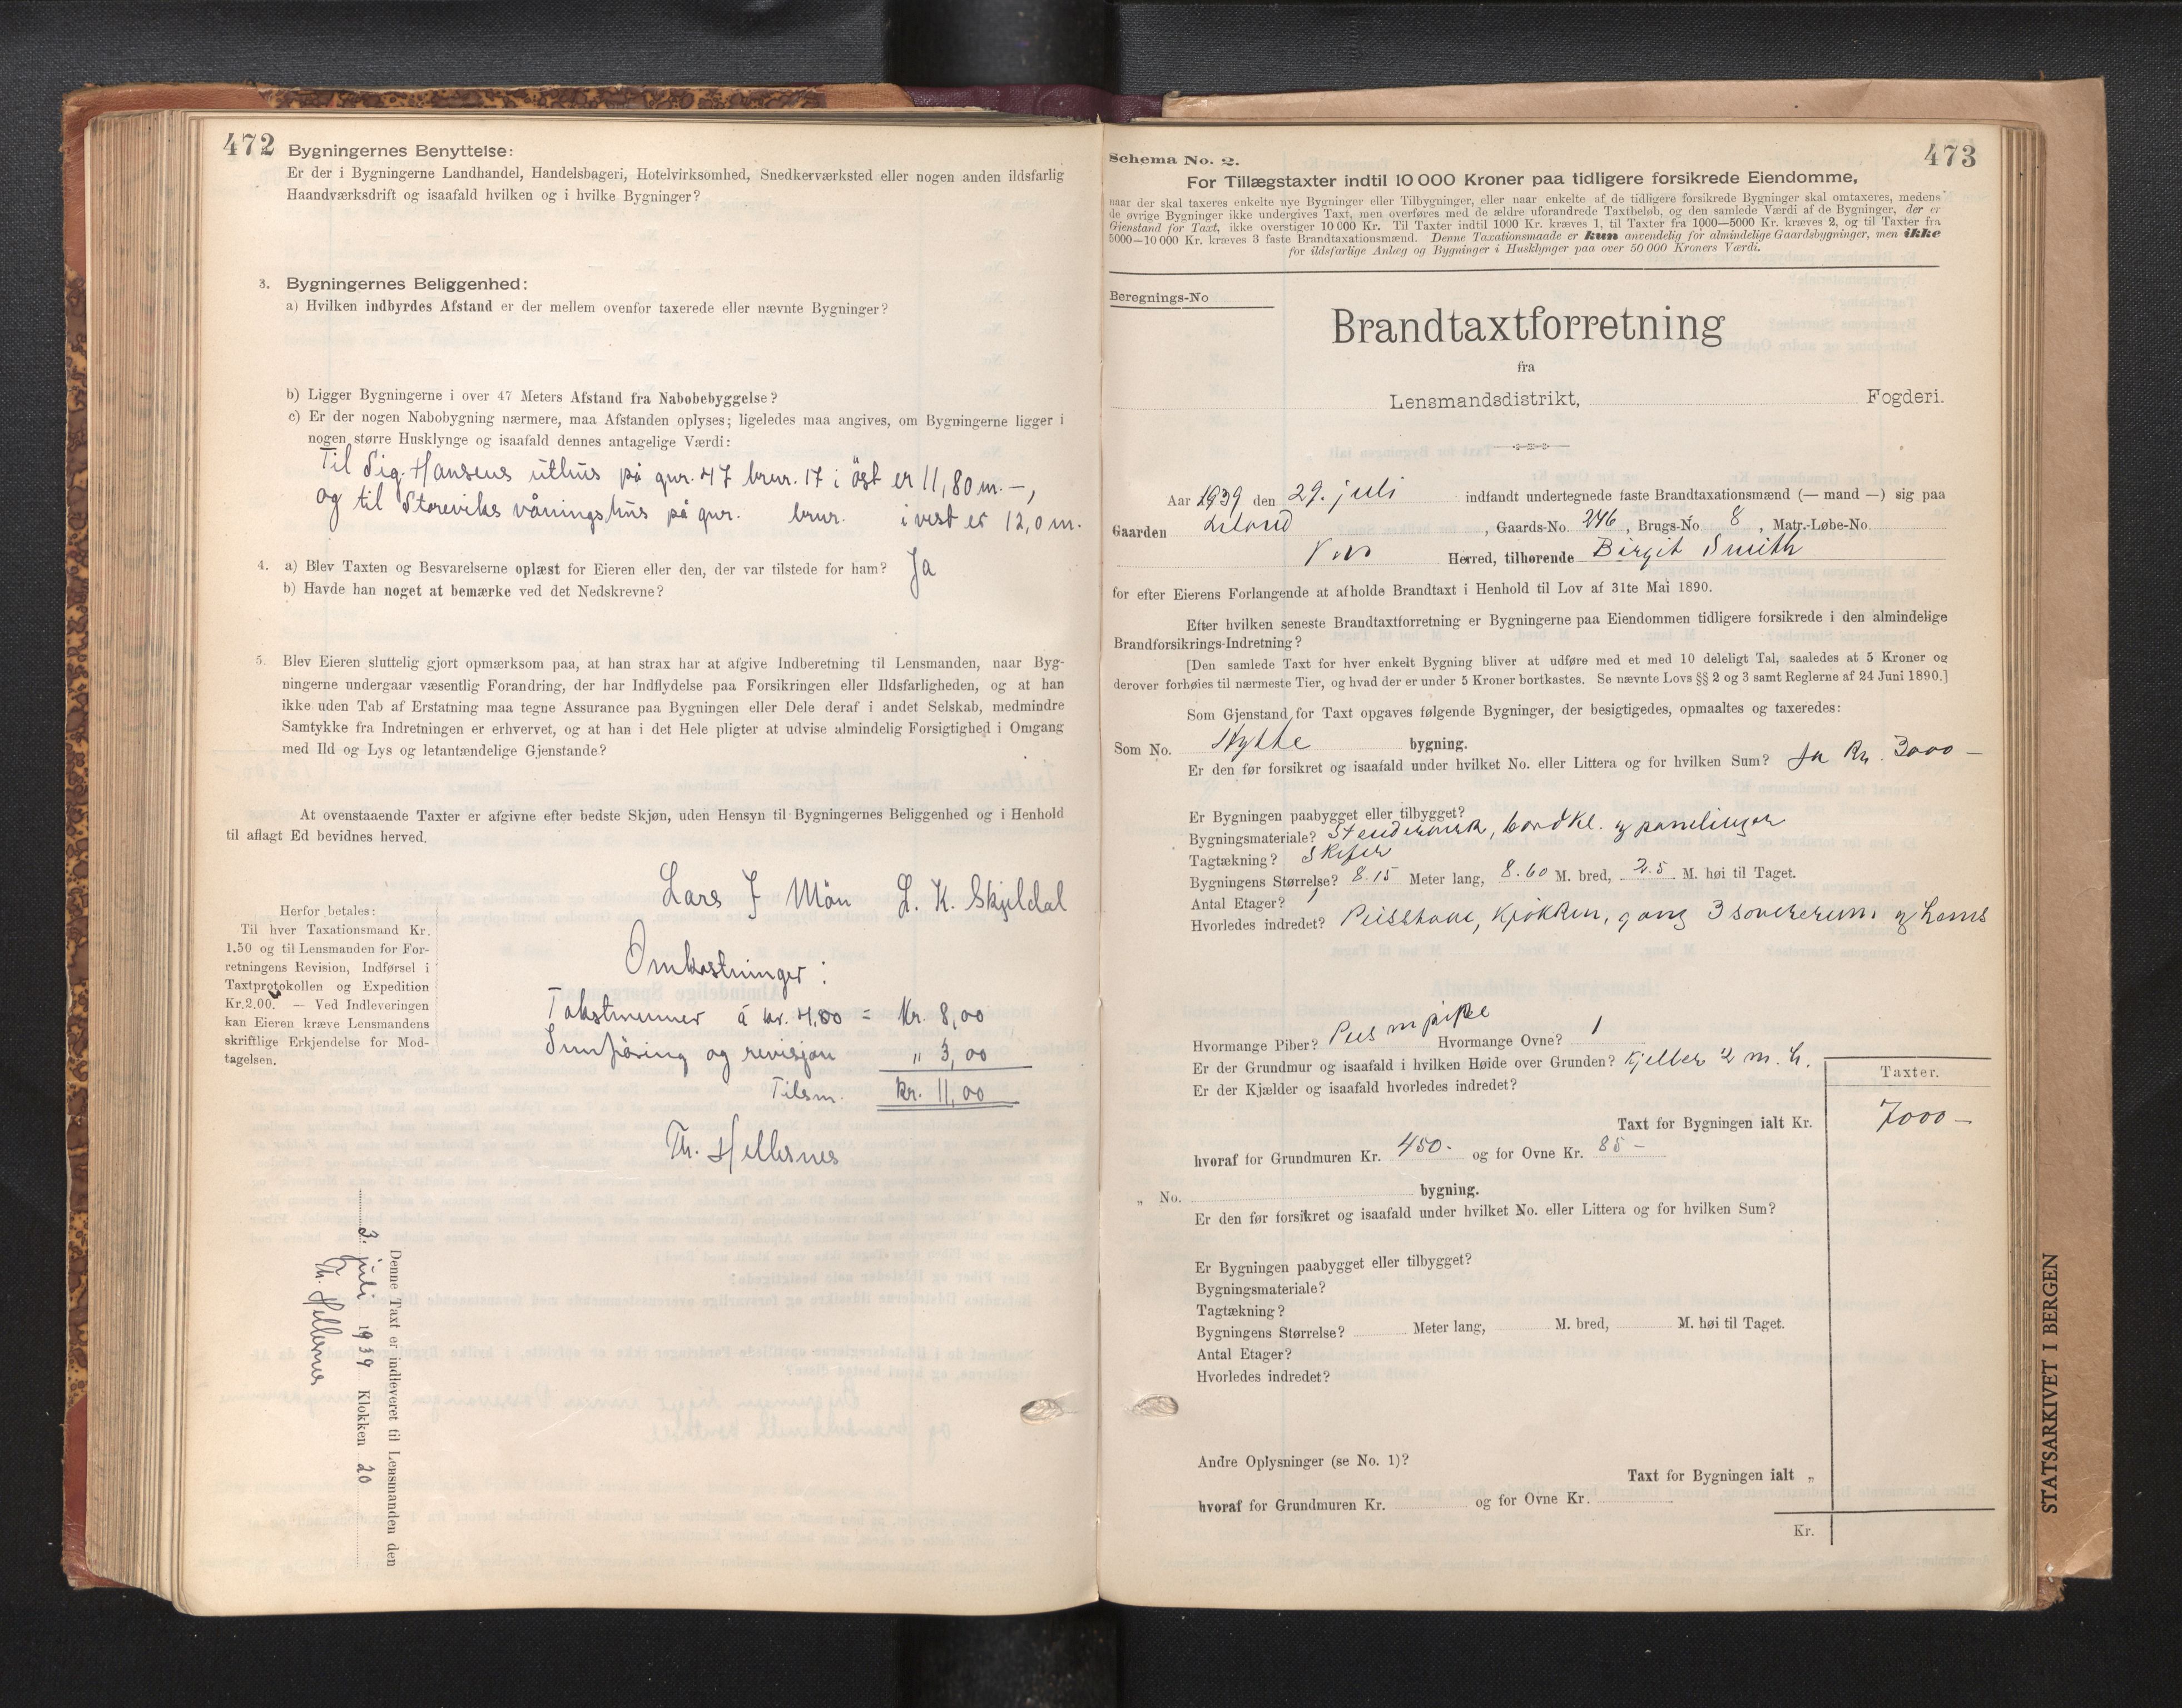 472
Bygningernes Benyttelse:
Er der i Bygningerne Landhandel, Handelsbageri, Hotelvirksomhed, Snedkerværksted eller nogen anden ildsfarlig
Haandværksdrift og isaafald hvilken og i hvilke Bygninger?
3. Bygningernes Beliggenhed:
a) Hvilken indbyrdes Afstand er der mellem ovenfor taxerede eller nævnte Bygninger?
b) Ligger Bygningerne i over 47 Meters Afstand fra Nabobebyggelse?
c) Er der nogen Nabobygning nærmere, maa Afstanden oplyses; ligeledes maa angives, om Bygningerne ligger i
nogen større Husklynge og isaafald dennes antagelige Værdi:
Til Sig. Hansens uthus på gnr. 47 brnr. 17 i öst er 11,80 m. –,
og til Storeviks våningshus på gnr. brnr. i vest er 12,0 m.
4. a) Blev Taxten og Besvarelserne oplæst for Eieren eller den, der var tilstede for ham? Ja
b) Havde han noget at bemærke ved det Nedskrevne?
5. Blev Eieren sluttelig gjort opmærksom paa, at han strax har at afgive Indberetning til Lensmanden, naar Byg-
ningerne undergaar væsentlig Forandring, der har Indflydelse paa Forsikringen eller Ildsfarligheden, og at han
ikke uden Tab af Erstatning maa tegne Assurance paa Bygningen eller Dele deraf i andet Selskab, medmindre
Samtykke fra Indretningen er erhvervet, og at han i det Hele pligter at udvise almindelig Forsigtighed i Omgang
med Ild og Lys og letantændelige Gjenstande?
At ovenstaaende Taxter er afgivne efter bedste Skjøn, uden Hensyn til Bygningernes Beliggenhed og i Henhold
til aflagt Ed bevidnes herved.
Lars J Mön L. K. Skjeldal
Herfor betales:
Til hver Taxationsmand Kr.
1.50 og til Lensmanden for For-
retningens Revision, Indførsel i
Taxtprotokollen og Expedition
Kr. 2.00. — Ved Indleveringen
kan Eieren kræve Lensmandens
skriftlige Erkjendelse for Mod-
tagelsen.
Omkostninger:
Takstmenner á kr. 4,00 = Kr. 8,00
Innföring og revisjon " 3,00
Tilsm. kr. 11,00
Th. Hellesnes
Denne Taxt er indleveret til Lensmanden den
3. juli 1939 Klokken 20
Th. Hellesnes
473
Schema No. 2.
For Tillægstaxter indtil 10 000 Kroner paa tidligere forsikrede Eiendomme,
naar der skal taxeres enkelte nye Bygninger eller Tilbygninger, eller naar enkelte af de tidligere forsikrede Bygninger skal omtaxeres, medens
de øvrige Bygninger ikke undergives Taxt, men overføres med de ældre uforandrede Taxtbeløb, og den samlede Værdi af de Bygninger, der er
Gjenstand for Taxt, ikke overstiger 10 000 Kr. Til Taxter indtil 1000 Kr. kræves 1, til Taxter fra 1000—5000 Kr. kræves 2, og til Taxter fra
5000—10 000 Kr. kræves 3 faste Brandtaxationsmænd. Denne Taxationsmaade er kun anvendelig for almindelige Gaardsbygninger, men ikke
for ildsfarlige Anlæg og Bygninger i Husklynger paa over 50 000 Kroners Værdi.
Beregnings-No
Brandtaxtforretning
fra
Lensmandsdistrikt, Fogderi.
Aar 1939 den 29. juli indfandt undertegnede faste Brandtaxationsmænd (— mand —) sig paa
Gaarden , Gaards-No. 246, Brugs-No 8, Matr.-Løbe-No.
Herred, tilhørende Birgit Smith
for efter Eierens Forlangende at afholde Brandtaxt i Henhold til Lov af 31te Mai 1890.
Efter hvilken seneste Brandtaxtforretning er Bygningerne paa Eiendommen tidligere forsikrede i den almindelige
Brandforsikrings-Indretning?
[Den samlede Taxt for hver enkelt Bygning bliver at udføre med et med 10 deleligt Tal, saaledes at 5 Kroner og
derover forhøies til nærmeste Tier, og hvad der er under 5 Kroner bortkastes. Se nævnte Lovs §§ 2 og 3 samt Reglerne af 24 Juni 1890.]
Som Gjenstand for Taxt opgaves følgende Bygninger, der besigtigedes, opmaaltes og taxeredes:
Som No. Hytte bygning.
Er den før forsikret og isaafald under hvilket No. eller Littera og for hvilken Sum? Ja Kr. 3000 –
Er Bygningen paabygget eller tilbygget?
Bygningsmateriale? Stenderverk, bordkl. og panelinger
Tagtækning? Skifer
Bygningens Størrelse? 8.15 Meter lang, 8.60 M. bred, 2.5 M. høi til Taget.
Antal Etager? 1
Hvorledes indredet? Peisstove, Kjökken, gang 3 soverum og hems
Hvormange Piber? Peis m pipe Hvormange Ovne? 1
Er der Grundmur og isaafald i hvilken Høide over Grunden? Kjeller 2 m. h.
Er der Kjælder og isaafald hvorledes indredet?
Taxter.
Taxt for Bygningen ialt Kr. 7000 –
hvoraf for Grundmuren Kr. 450 - og for Ovne Kr. 85 –
„ No. bygning.
Er den før forsikret og isaafald under hvilket No. eller Littera og for hvilken Sum?
Er Bygningen paabygget eller tilbygget?
Bygningsmateriale?
Tagtækning?
Bygningens Størrelse? Meter lang, M. bred, M. høi til Taget.
Antal Etager?
Hvorledes indredet?
Andre Oplysninger (se No. 1)?
Taxt for Bygningen ialt „
hvoraf for Grundmuren Kr. og for Ovne Kr.
Kr.
STATSARKIVET I BERGEN